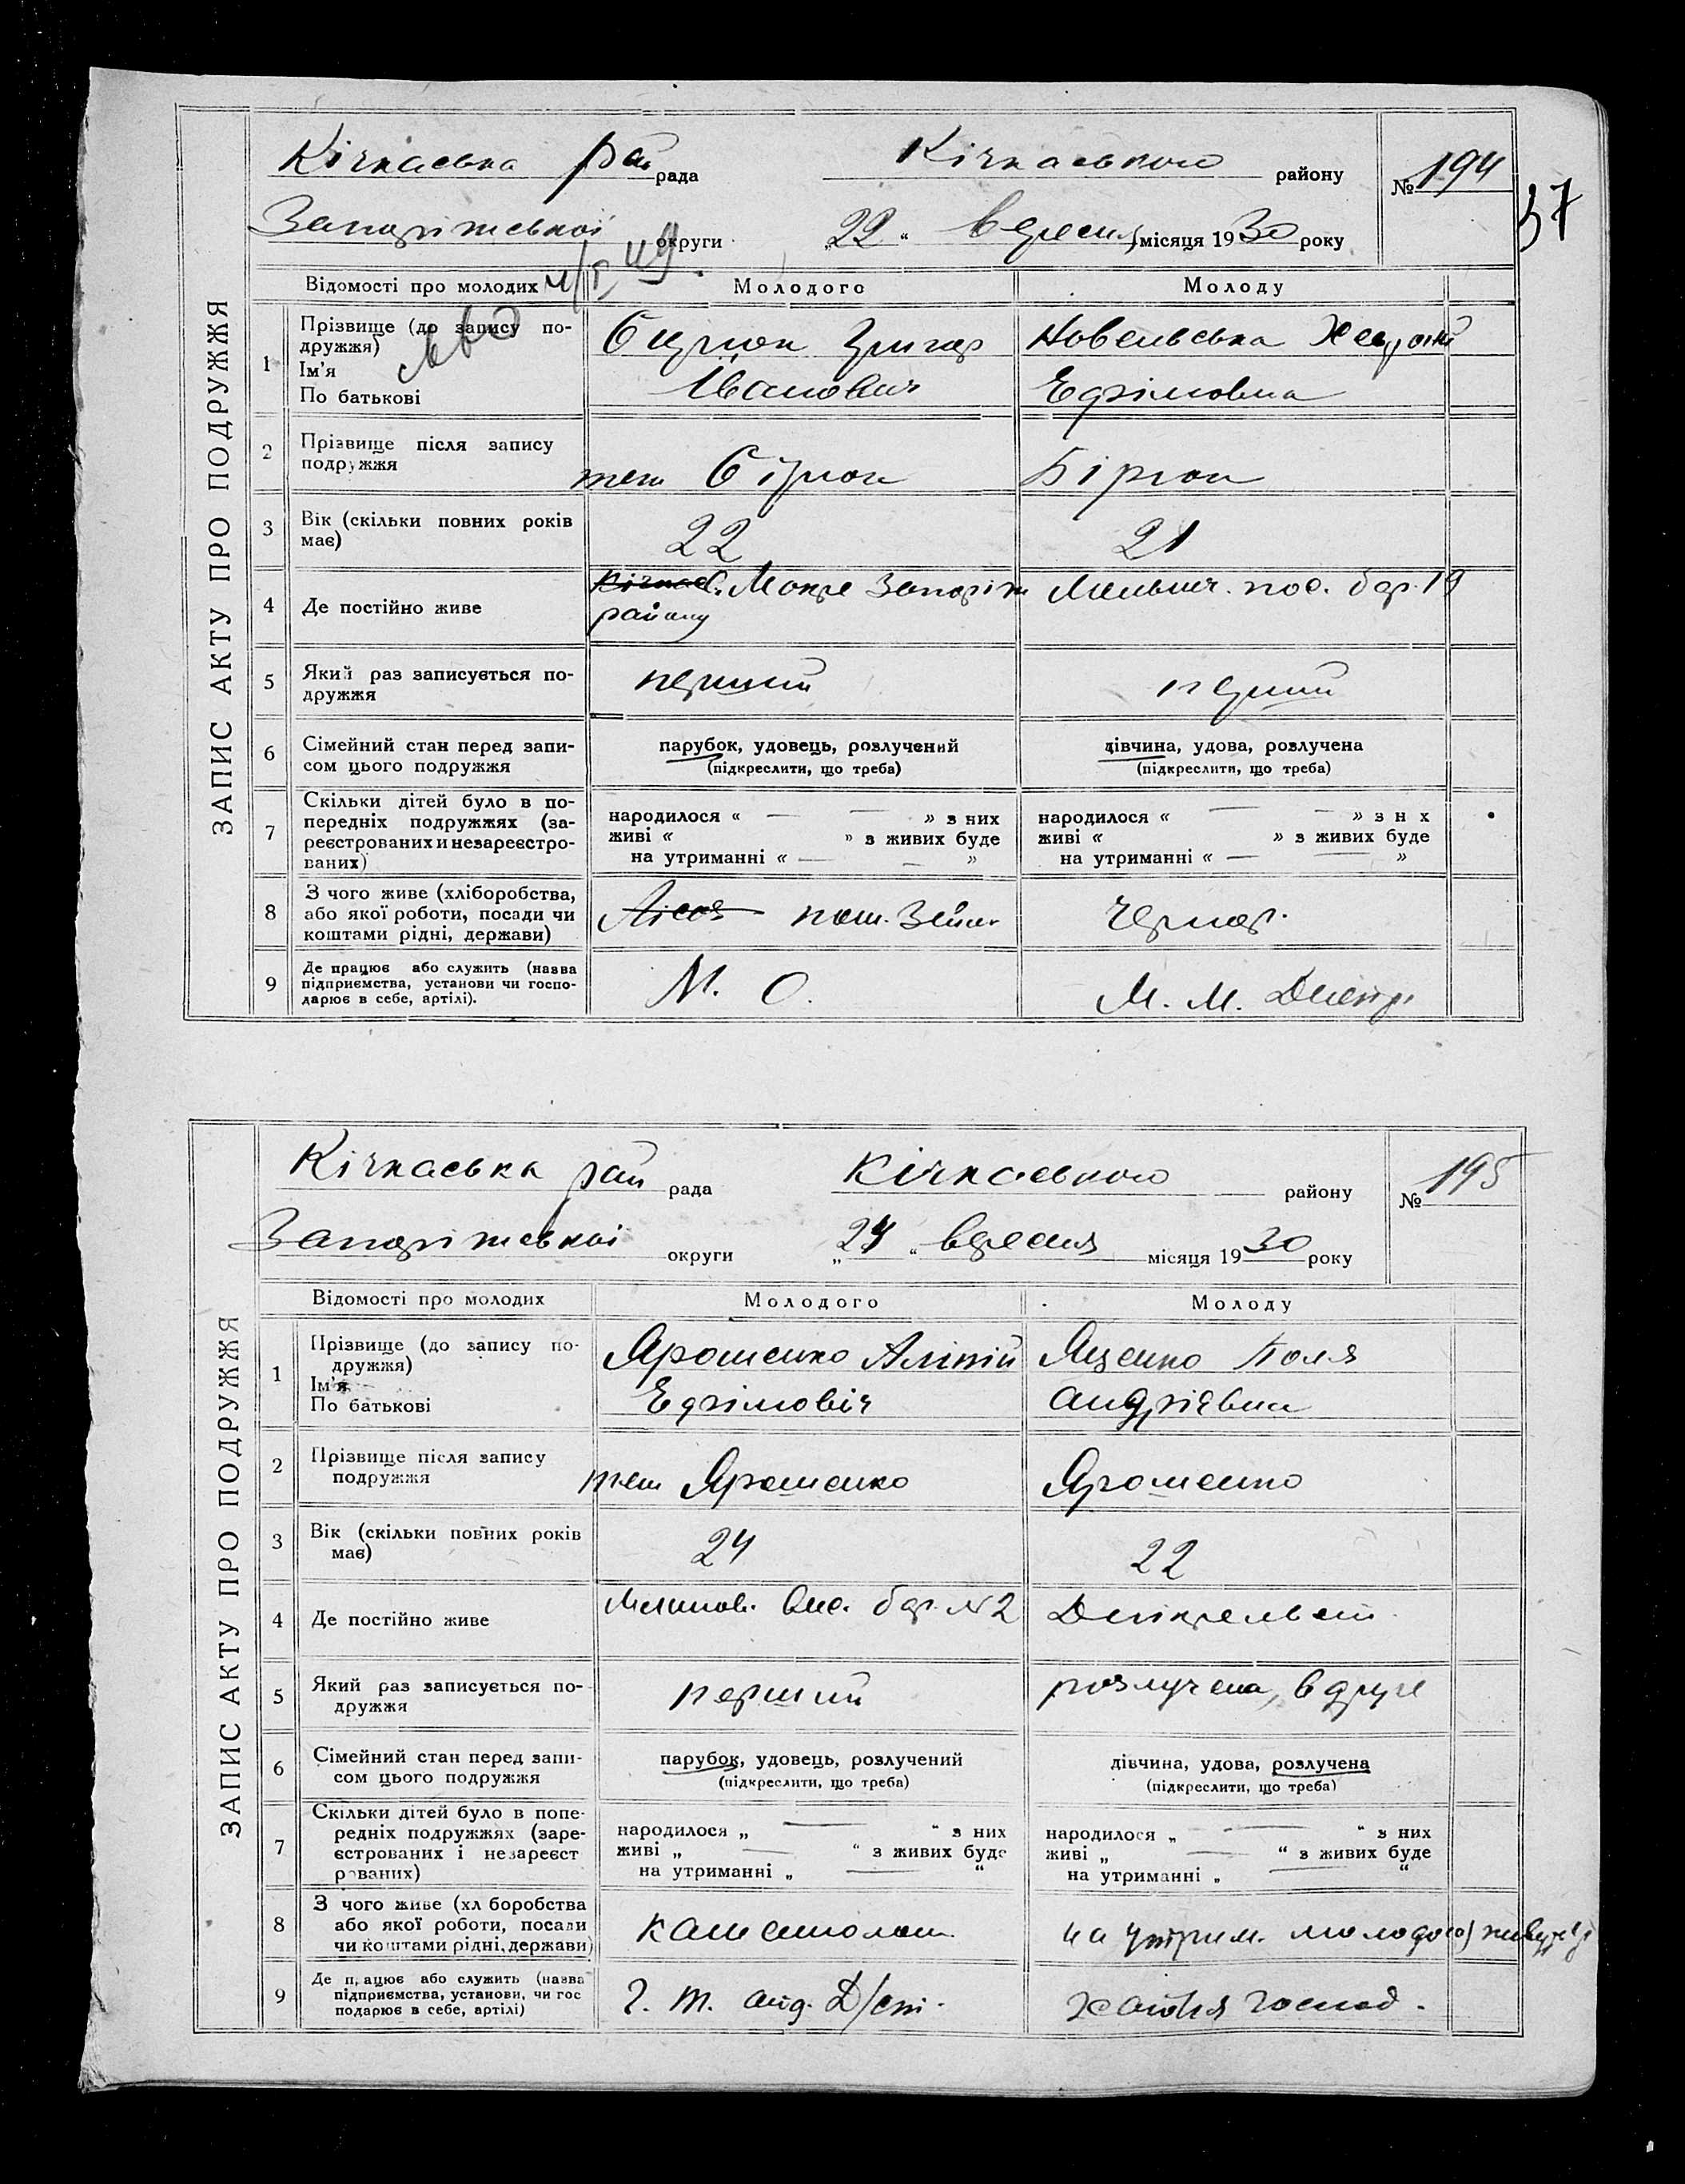 Кічкаська рай рада Кічкаського району № 194
37
Запоріжської округи „22“ вересня місяця 1930 року
ЗАПИС АКТУ ПРО ПОДРУЖЖЯ
Відомості про молодих Молодого Молоду
1 Прізвище (до запису подружжя)
Ім'я
По батькові
Григор
Іванович
Новельська
Ефімовна
2 Прізвище після запису подружжя
теж Бірюк Бірюк
3 Вік (скільки повних років має) 22 21
4 Де постійно живе
с. Мокре Запоріж району
пос. бар. 19
5 Який раз записується подружжя перший перший
6 Сімейний стан перед записом цього подружжя
парубок, удовець, розлучений
(підкреслити, що треба)
дівчина, удова, розлучена
(підкреслити, що треба)
7 Скільки дітей було в попередніх подружжях (зареєстрованих и незареєстрованих)
народилося « — — » з них
живі « » з живих буде
на утриманні « — — »
народилося « — — » з н х
живі « » з живих буде
на утриманні « — — »
8 З чого живе (хліборобства, або якої роботи, посади чи коштами рідні, держави)
чернор.
9 Де працює або служить (назва підприємства, установи чи господарює в себе, артілі).
М. О.
М. М.
Кічкаська рай рада Кічкаського району № 195
Запоріжської округи „24“ вересня місяця 1930 року
ЗАПИС АКТУ ПРО ПОДРУЖЖЯ
Відомості про молодих Молодого Молоду
1 Прізвище (до запису подружжя)
Ім'я
По батькові
Ярошенко Аліпій
Ефімовіч
Яценко Поля
Андріївна
2 Прізвище після запису подружжя
теж Ярошенко Ярошенко
3 Вік (скільки повних років має) 24 22
4 Де постійно живе
бар. №2
Дніпрельст.
5 Який раз записується подружжя перший розлучена, вдруге
6 Сімейний стан перед записом цього подружжя
парубок, удовець, розлучений
(підкреслити, що треба)
дівчина, удова, розлучена
(підкреслити, що треба)
7 Скільки дітей було в попередніх подружжях (зареєстрованих і незареєст рованих)
народилося „ — “ з них
живі „ — “ з живих буде
на утриманні „ — “
народилося „ — “ з них
живі „ — “ з живих буде
на утриманні „ — “
8 З чого живе (хл боробства або якої роботи, посади чи коштами рідні, держави)
на утрим. молодого
9 Де п ацює або служить (назва підприємства, установи, чи гос подарює в себе, артілі)
Д/ст.
хатня господ.